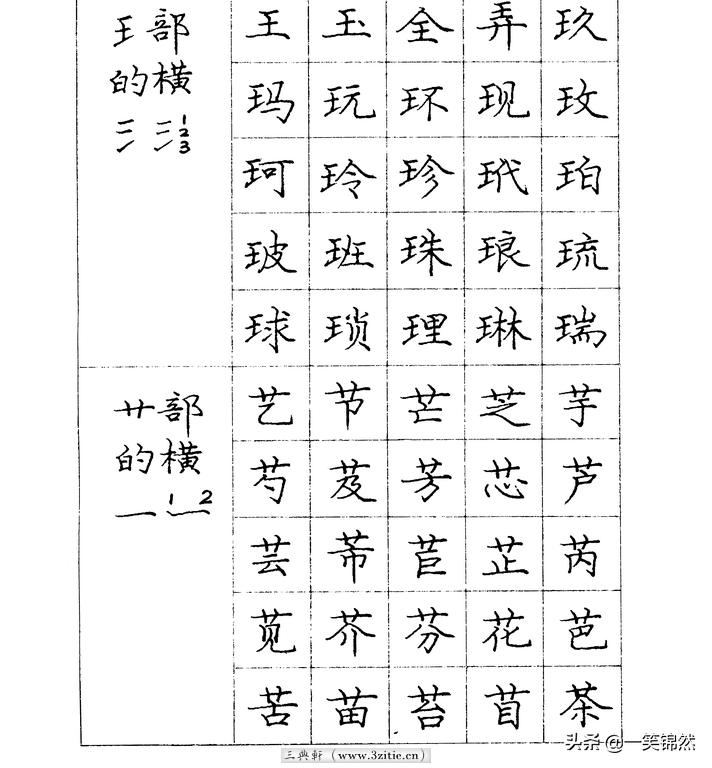 王部
的横
123
王 玉 全 弄 玖
玛 玩 环 现 玫
珂 玲 珍 玳 珀
玻 班 珠 琅 琉
球 琐 理 琳 瑞
艹部
的横
1 2
艺 节 芒 芝 芋
芍 芨 芳 芯 芦
芸 芾 苣 芷 芮
苋 芥 芬 花 芭
苦 苗 苔 苜 茶
三典軒(www.3zitie.cn)
头条@一笑锦然